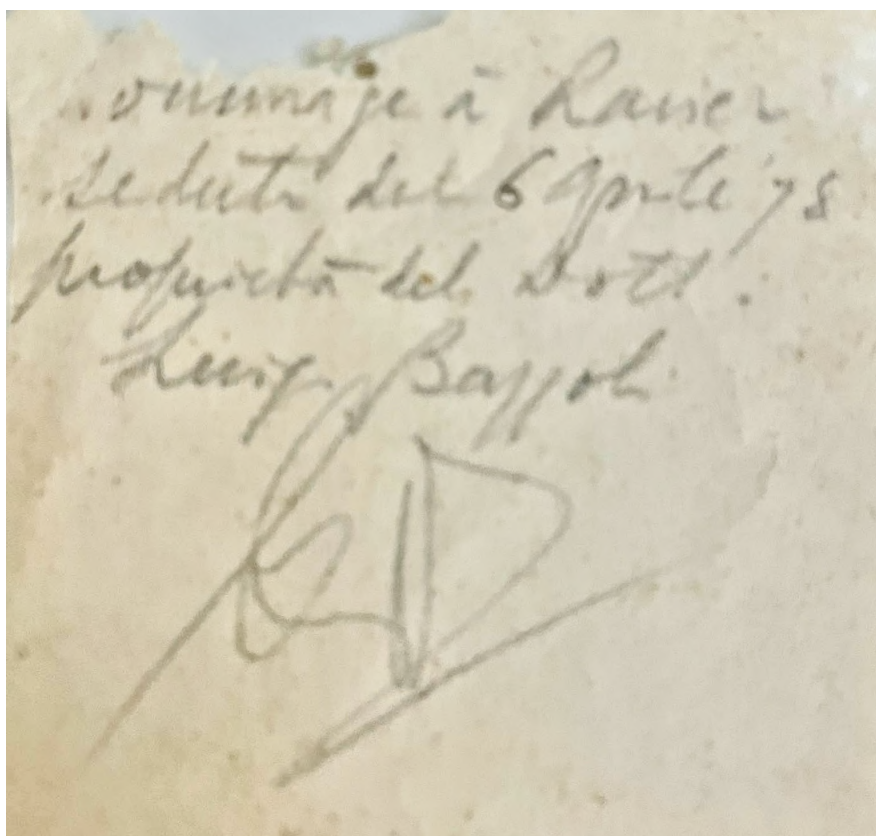 ommage à Ravier
seduta del 6 Aprile 78
proprietà del Dott.
Luigi Bazzoli